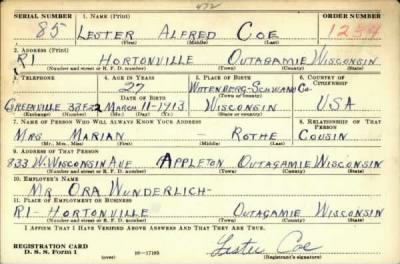 472
SERIAL NUMBER 1. NAME (Print) ORDER NUMBER
85 LESTER ALFRED COE 1284
(First) (Middle) (Last)
2. ADDRESS (Print)
R1 HORTONVILLE OUTAGAMIE WISCONSIN
(Number and street or R. F. D. number) (Town) (County) (State)
3. TELEPHONE 4. AGE IN YEARS 5. PLACE OF BIRTH 6. COUNTRY OF CITIZENSHIP
27 WITTENBERG-SCHWANO CO
DATE OF BIRTH (Town or county)
GREENVILLE 33F22 MARCH-11-1913 WISCONSIN USA
(Exchange) (Number) (Mo.) (Day) (Yr.) (State or country)
7. NAME OF PERSON WHO WILL ALWAYS KNOW YOUR ADDRESS 8. RELATIONSHIP OF THAT PERSON
MRS. MARIAN - ROTHE COUSIN
(Mr., Mrs., Miss) (First) (Middle) (Last)
9. ADDRESS OF THAT PERSON
833 W. WISCONSIN AVE APPLETON OUTAGAMIE WISCONSIN
(Number and street or R. F. D. number) (Town) (County) (State)
10. EMPLOYER'S NAME
MR. ORA WUNDERLICH-
11. PLACE OF EMPLOYMENT OR BUSINESS
R1- HORTONVILLE OUTAGAMIE WISCONSIN
(Number and street or R. F. D. number) (Town) (County) (State)
I AFFIRM THAT I HAVE VERIFIED ABOVE ANSWERS AND THAT THEY ARE TRUE.
REGISTRATION CARD
D. S. S. Form 1 (over) 16-17105 Lester Coe
(Registrant's signature)